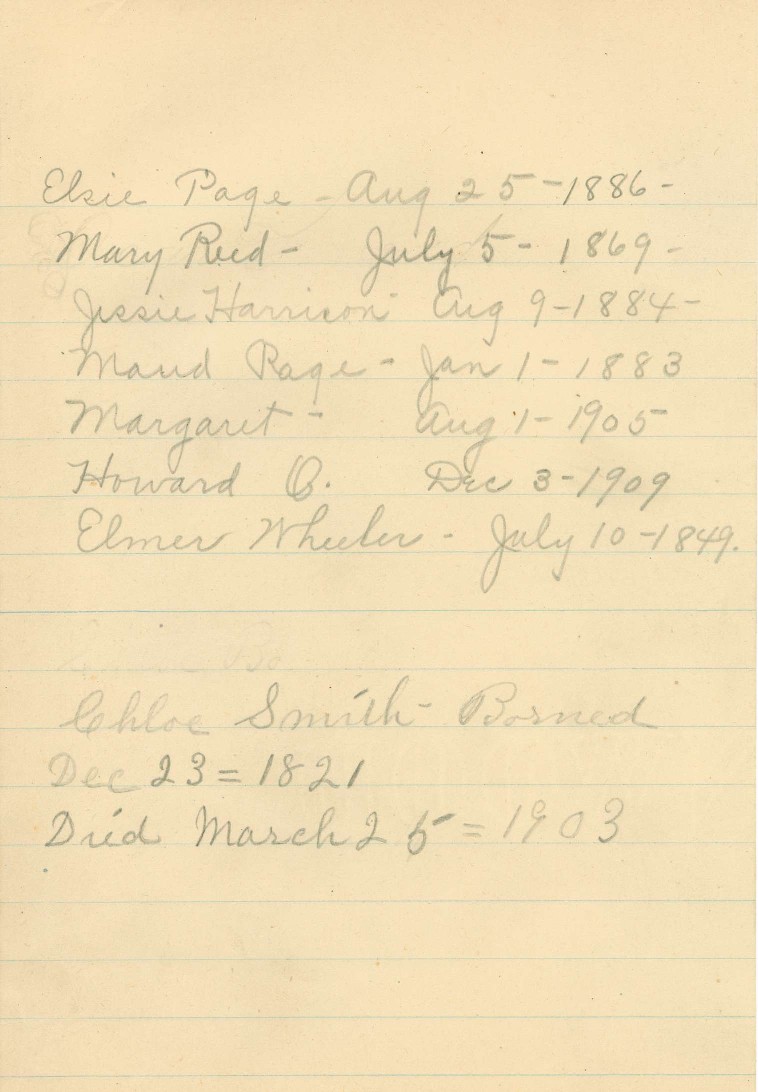 Elsie Page - Aug 25 - 1886 -
Mary Reed - July 5 - 1869 -
Jessie Harrison - Aug 9 - 1884 -
Maud Page - Jan 1 - 1883
Margaret - Aug 1 - 1905
Howard C. Dec 3 - 1909
Elmer Wheeler - July 10 - 1849.
Chloe Smith - Borned
Dec 23 = 1821
Died March 25 = 1903